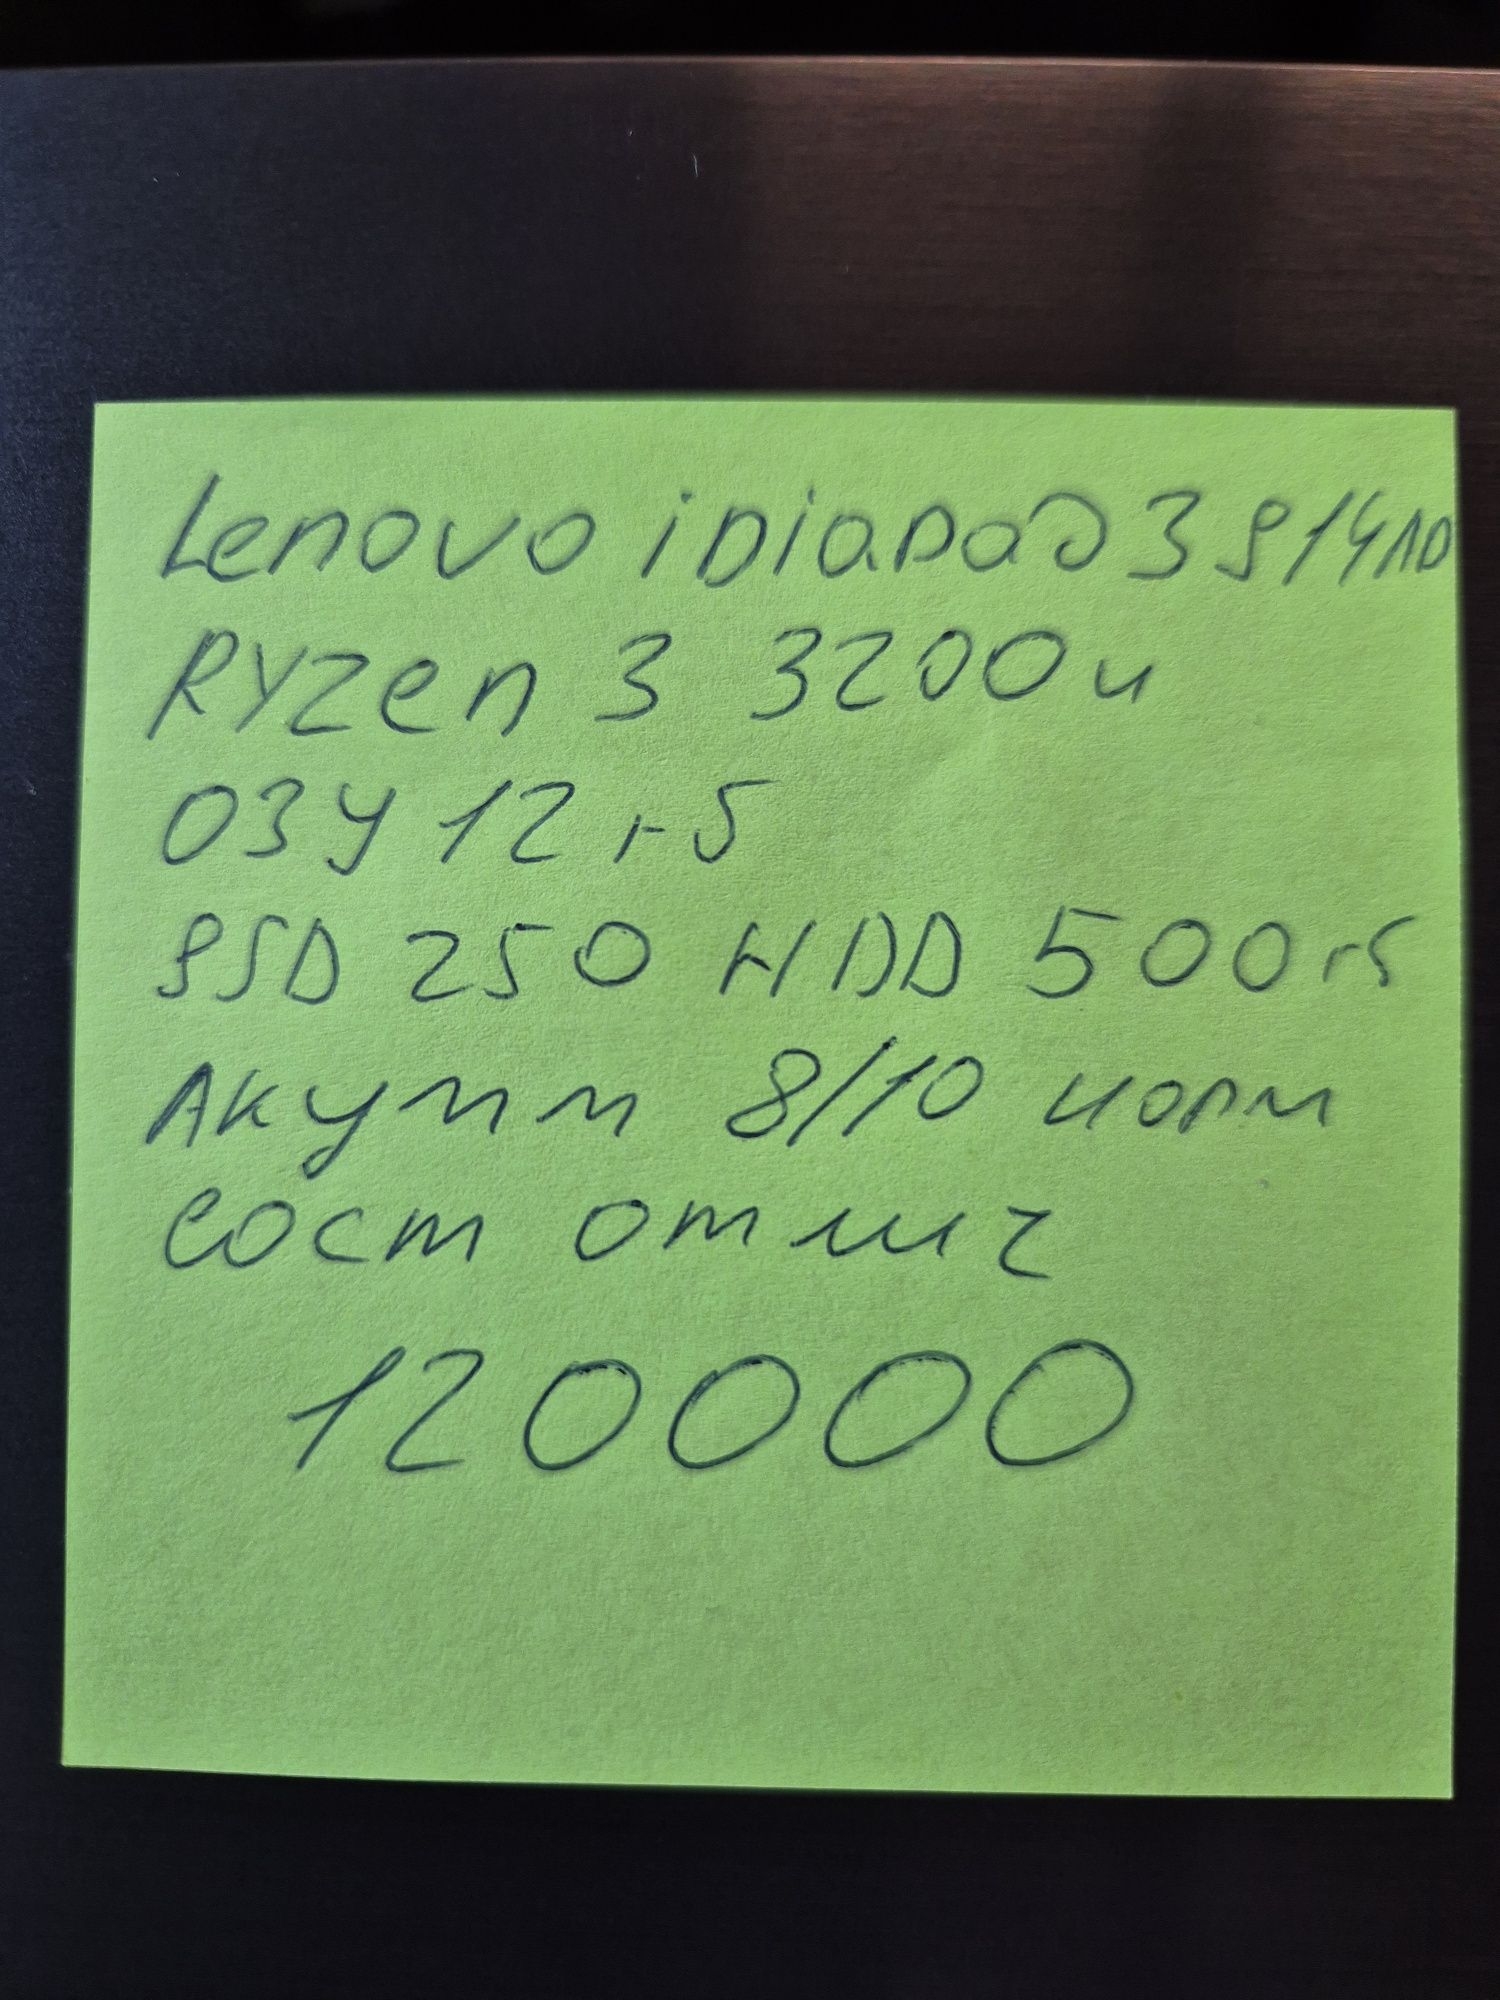 Lenovo iDiapad 3 S14ИD
Ryzen 3 3200u
ОЗУ 12 гб
SSD 250 HDD 500гб
Акумм 8/10 норм
сост отлич
120000